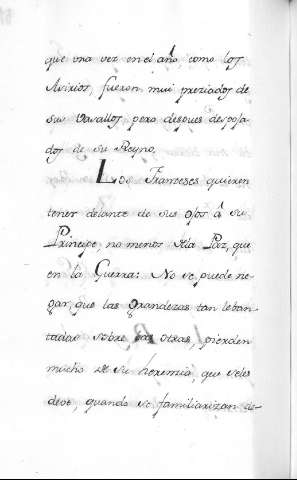 que una vez en el año como los
Asirios, fueron mui preziados de
sus Vasallos pero despues despoja-
dos de su Reyno.
Los Franceses quieren
tener delante de sus ojos â su
Principe, no menos la Paz, que
en la Guerra: No se puede ne-
gar, que las grandezas tan leban-
tadas sobre las otras, pierden
mucho de su
deve, quando se familiarizan de-